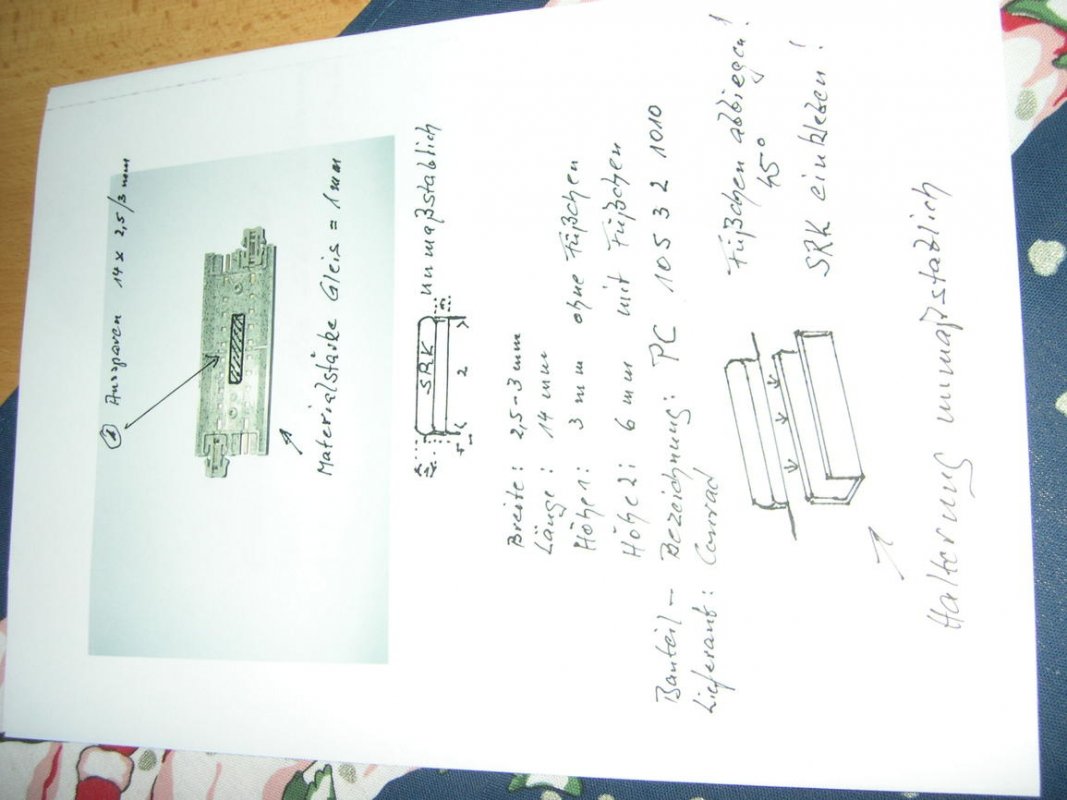 1 Aussparen 14 x 2,5/3 mm
Materialstärke Gleis = 1mm
SRK
2
1
unmaßstäblich
Breite: 2,5-3mm
Länge: 14 mm
Höhe1: 3 mm ohne Füßchen
Höhe2: 6 mm mit Füßchen
Bauteil - Bezeichnung: PC 105 32 1010
Lieferant: Conrad
Füßchen abbiegen!
45°
SRK einkleben!
Halterung unmaßstablich